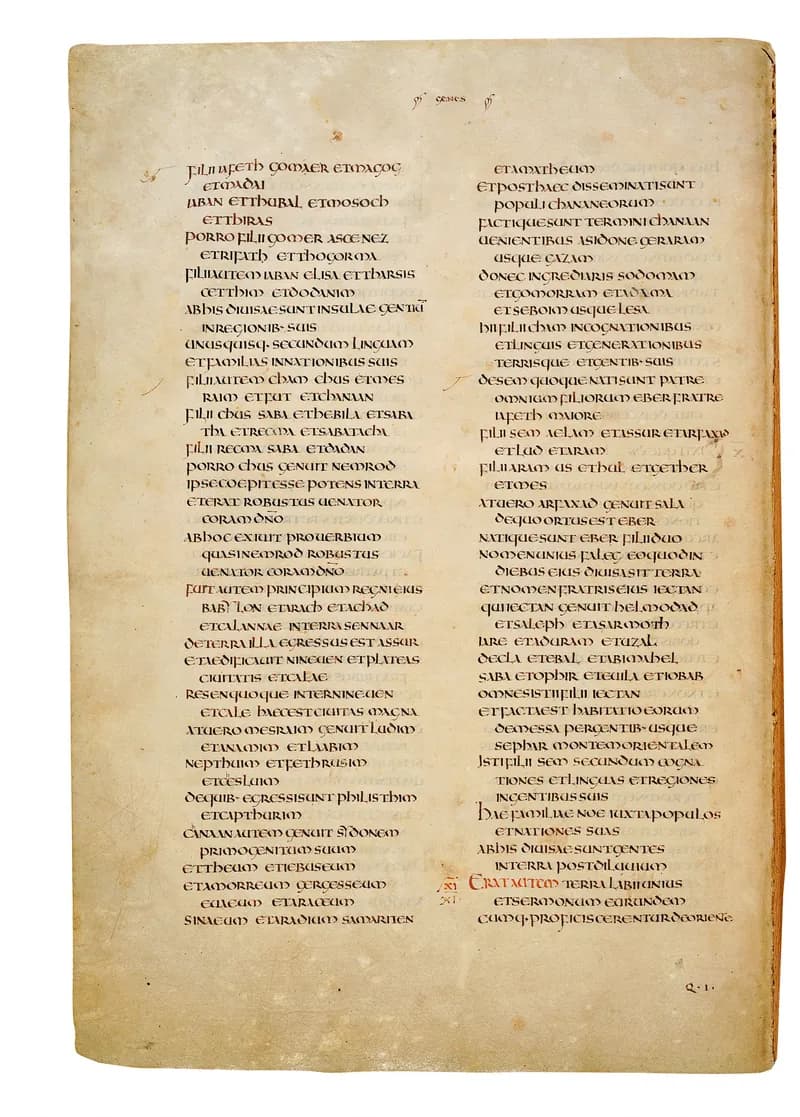 GENES
FILII IAFETH GOMAER ETMAGOG
ETMADAI
IABAN ETTHUBAL ETMOSOCH
ETTHIRAS
PORRO FILII GOMER ASCENEZ
ETRIFATH ETTHOGORMA
FILIIAUTEM IABAN ELISA ETTHARSIS
CETTHIM ETDODANIM
ABHIS DIUISAESUNTINSULAE GENTIŪ
INREGIONIB· SUIS
UNUSQUISQ· SECUNDUM LINGUAM
ETFAMILIAS INNATIONIBUS SUIS
FILIIAUTEM CHAM CHUS ETMES
RAIM ETFUT ETCHANAAN
FILII CHUS SABA ETHEBILA ETSABA
THA ETREGMA ETSABATACHA
FILII REGMA SABA ETDADAN
PORRO CHUS GENUIT NEMROD
IPSECOEPITESSE POTENS INTERRA
ETERAT ROBUSTUS UENATOR
CORAM DN̄O
ABHOC EXIUIT PROUERBIUM
QUASINEMROD ROBUSTUS
UENATOR CORAMDN̄O
FUITAUTEM PRINCIPIUM REGNIEIUS
BABYLON ETARACH ETACHAD
ETCALANNAE INTERRASENNAAR
DETERRAILLA EGRESSUSEST ASSUR
ETAEDIFICAUIT NINEUEN ETPLATEAS
CIUITATIS ETCALAE
RESENQUOQUE INTERNINEUEN
ETCALE HAECESTCIUITAS MAGNA
ATUERO MESRAIM GENUIT LUDIM
ETANAMIM ETLAABIM
NEPTHUIM ETFETHRUSIM
ETCESLUIM
DEQUIB· EGRESSISUNT PHILISTHIM
ETCAPTHURIM
CANAANAUTEM GENUIT SIDONEM
PRIMOGENITUM SUUM
ETTHEUM ETIEBUSEUM
ETAMORREUM GERGESSEUM
EUAEUM ETARACEUM
SINAEUM ETARADIUM SAMARITEN
ETAMATHEUM
ETPOSTHAEC DISSEMINATISUNT
POPULI CHANANEORUM
FACTIQUESUNT TERMINI CHANAAN
UENIENTIBUS ASIDONE GERARAM
USQUE GAZAM
DONEC INGREDIARIS SODOMAM
ETGOMORRAM ETADAMA
ETSEBOIM USQUE LESA
HIIFILIICHAM INCOGNATIONIBUS
ETLINGUIS ETGENERATIONIBUS
TERRISQUE ETGENTIB· SUIS
DESEM QUOQUE NATISUNT PATRE
OMNIUM FILIORUM EBER FRATRE
IAFETH MAIORE
FILII SEM AELAM ETASSUR ETARFAXAD
ETLUD ETARAM
FILII ARAM US ETHUL ETGETHER
ETMES
ATUERO ARFAXAD GENUIT SALA
DEQUO ORTUSEST EBER
NATIQUESUNT EBER FILIIDUO
NOMENUNIUS FALEG EOQUODIN
DIEBUS EIUS DIUISASIT TERRA
ETNOMEN FRATRIS EIUS IECTAN
QUIIECTAN GENUIT HELMODAD
ETSALEPH ETASARMOTH
IARE ETADURAM ETUZAL
DECLA ETEBAL ETABIMAHEL
SABA ETOPHIR ETEUILA ETIOBAB
OMNESISTI FILII IECTAN
ETFACTAEST HABITATIO EORUM
DEMESSA PERGENTIB· USQUE
SEPHAR MONTEM ORIENTALEM
ISTI FILII SEM SECUNDUM COGNA
TIONES ETLINGUAS ETREGIONES
INGENTIBUS SUIS
HAE FAMILIAE NOE IUXTA POPULOS
ETNATIONES SUAS
ABHIS DIUISAESUNTGENTES
INTERRA POSTDILUUIUM
XI ERATAUTEM TERRA LABIIUNIUS
XI ETSERMONUM EORUNDEM
CUMQ· PROFICISCERENTUR DEORIENTE
Q·I·